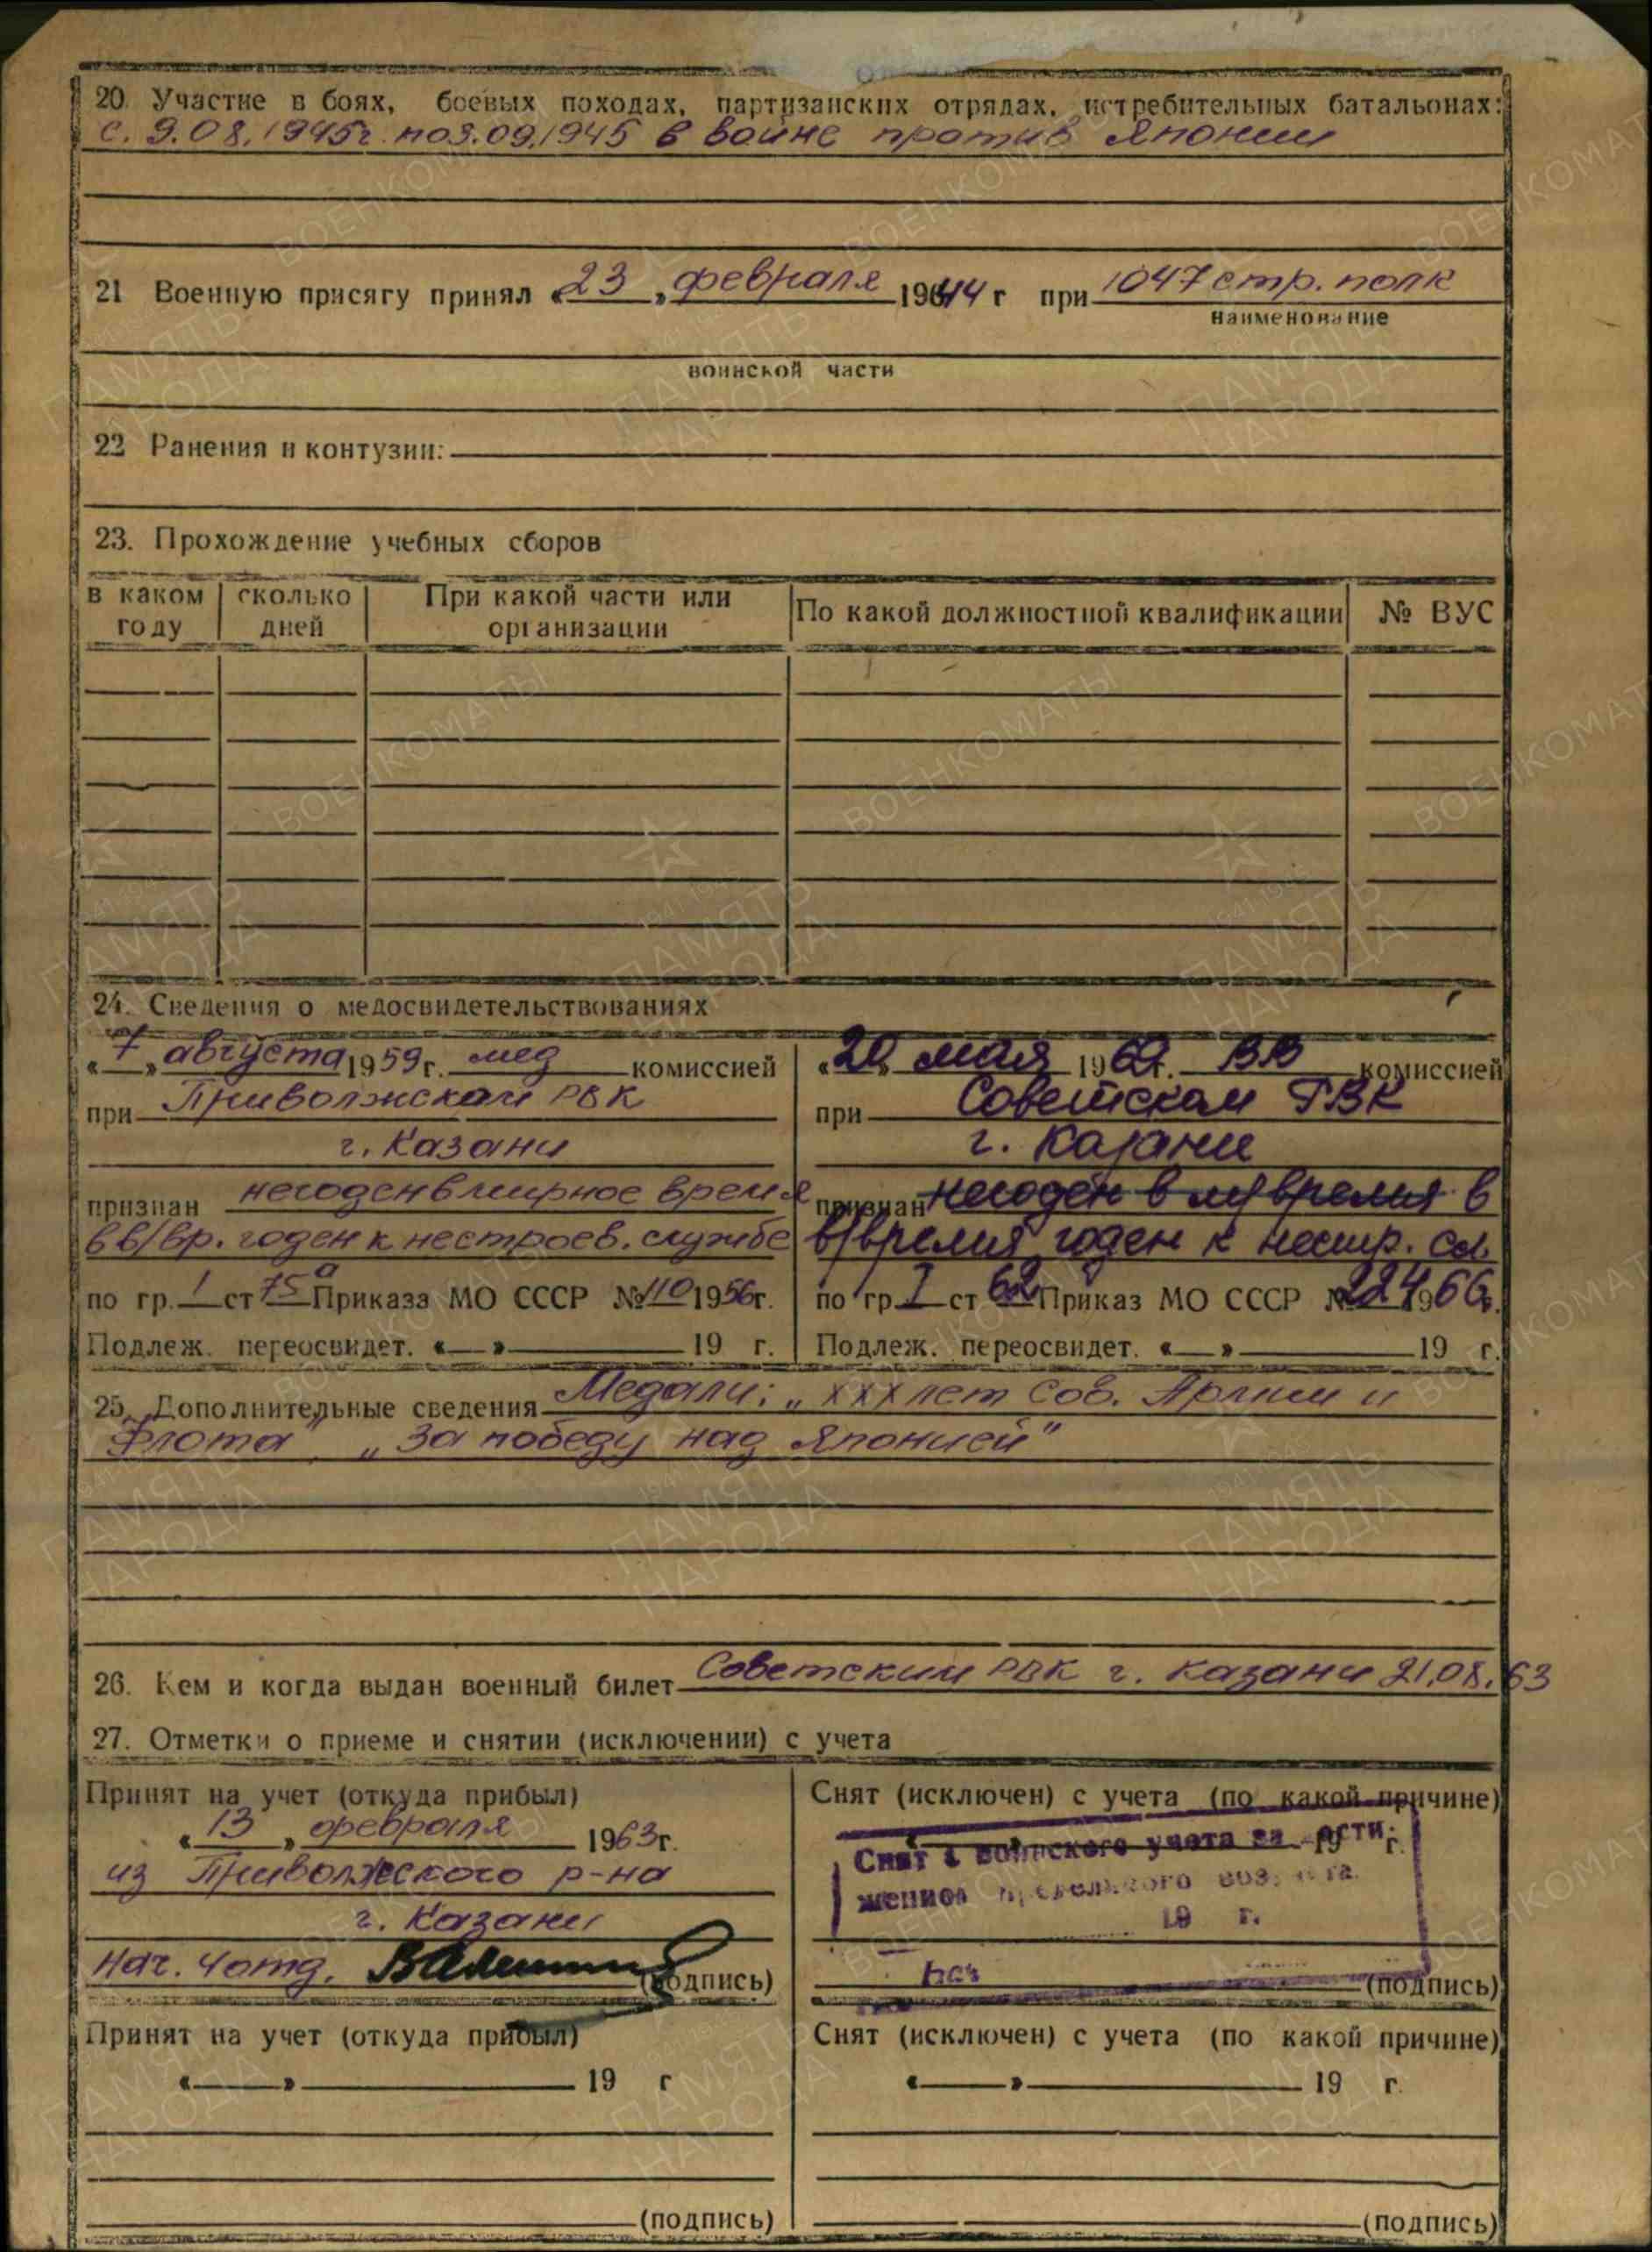 20. Участие в боях, боевых походах, партизанских отрядах, истребительных батальонах:
с. 9.08.1945г. по 3.09.1945 в войне против Японии
21 Военную присягу принял «23» февраля 1944 г при 1047 стр. полк
наименование
воинской части
22 Ранения и контузии:
23. Прохождение учебных сборов
в каком году | сколько дней | При какой части или организации | По какой должностной квалификации | № ВУС
24. Сведения о медосвидетельствованиях
«7» августа 1959 г. мед комиссией
при Приволжском РВК
г. Казани
признан негоден в мирное время
в в/вр. годен к нестроев. службе
по гр. 1 ст 75а Приказа МО СССР № 110 1956г.
Подлеж. переосвидет. «__» 19 г.
«20» мая 1969г. ВВ комиссией
при Советском РВК
г. Казани
признан негоден в м/время в
в/время годен к нестр. сл.
по гр I ст 62 Приказ МО СССР № 224 1966г.
Подлеж. переосвидет. «__» 19 г.
25. Дополнительные сведения Медали: „ХХХ лет Сов. Армии и
Флота" „За победу над Японией"
26. Кем и когда выдан военный билет Советским РВК г. Казани 21.08.63
27. Отметки о приеме и снятии (исключении) с учета
Принят на учет (откуда прибыл)
«13» февраля 1963г.
из Приволжского р-на
г. Казани
Нач. 4 отд. (подпись)
Снят (исключен) с учета (по какой причине)
19 г.
Снят с воинского учета за дости-
жением предельного возраста.
19 г.
Нач (подпись)
Принят на учет (откуда прибыл)
«__» 19 г
(подпись)
Снят (исключен) с учета (по какой причине)
«__» 19 г.
(подпись)
ПАМЯТЬ НАРОДА
1941-1945
ВОЕНКОМАТЫ